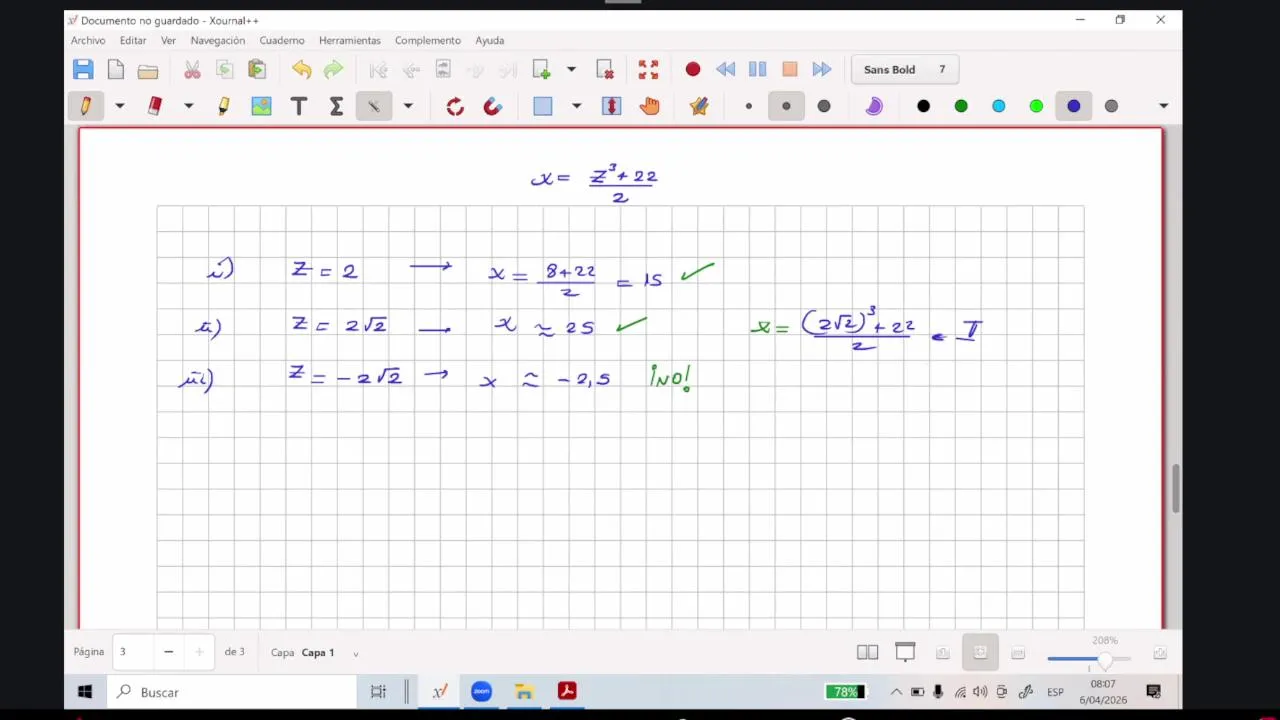 Documento no guardado - Xournal++
Archivo Editar Ver Navegación Cuaderno Herramientas Complemento Ayuda
Sans Bold 7
x = (z³ + 22)/2
i) z = 2 → x = (8+22)/2 = 15 ✓
ii) z = 2√2 → x ≈ 25 ✓ x = ((2√2)³ + 22)/2 ∈ I
iii) z = -2√2 → x ≈ -2,5 ¡NO!
208%
Página 3 de 3 Capa Capa 1
Buscar
zoom
78%
ESP
08:07
6/04/2026